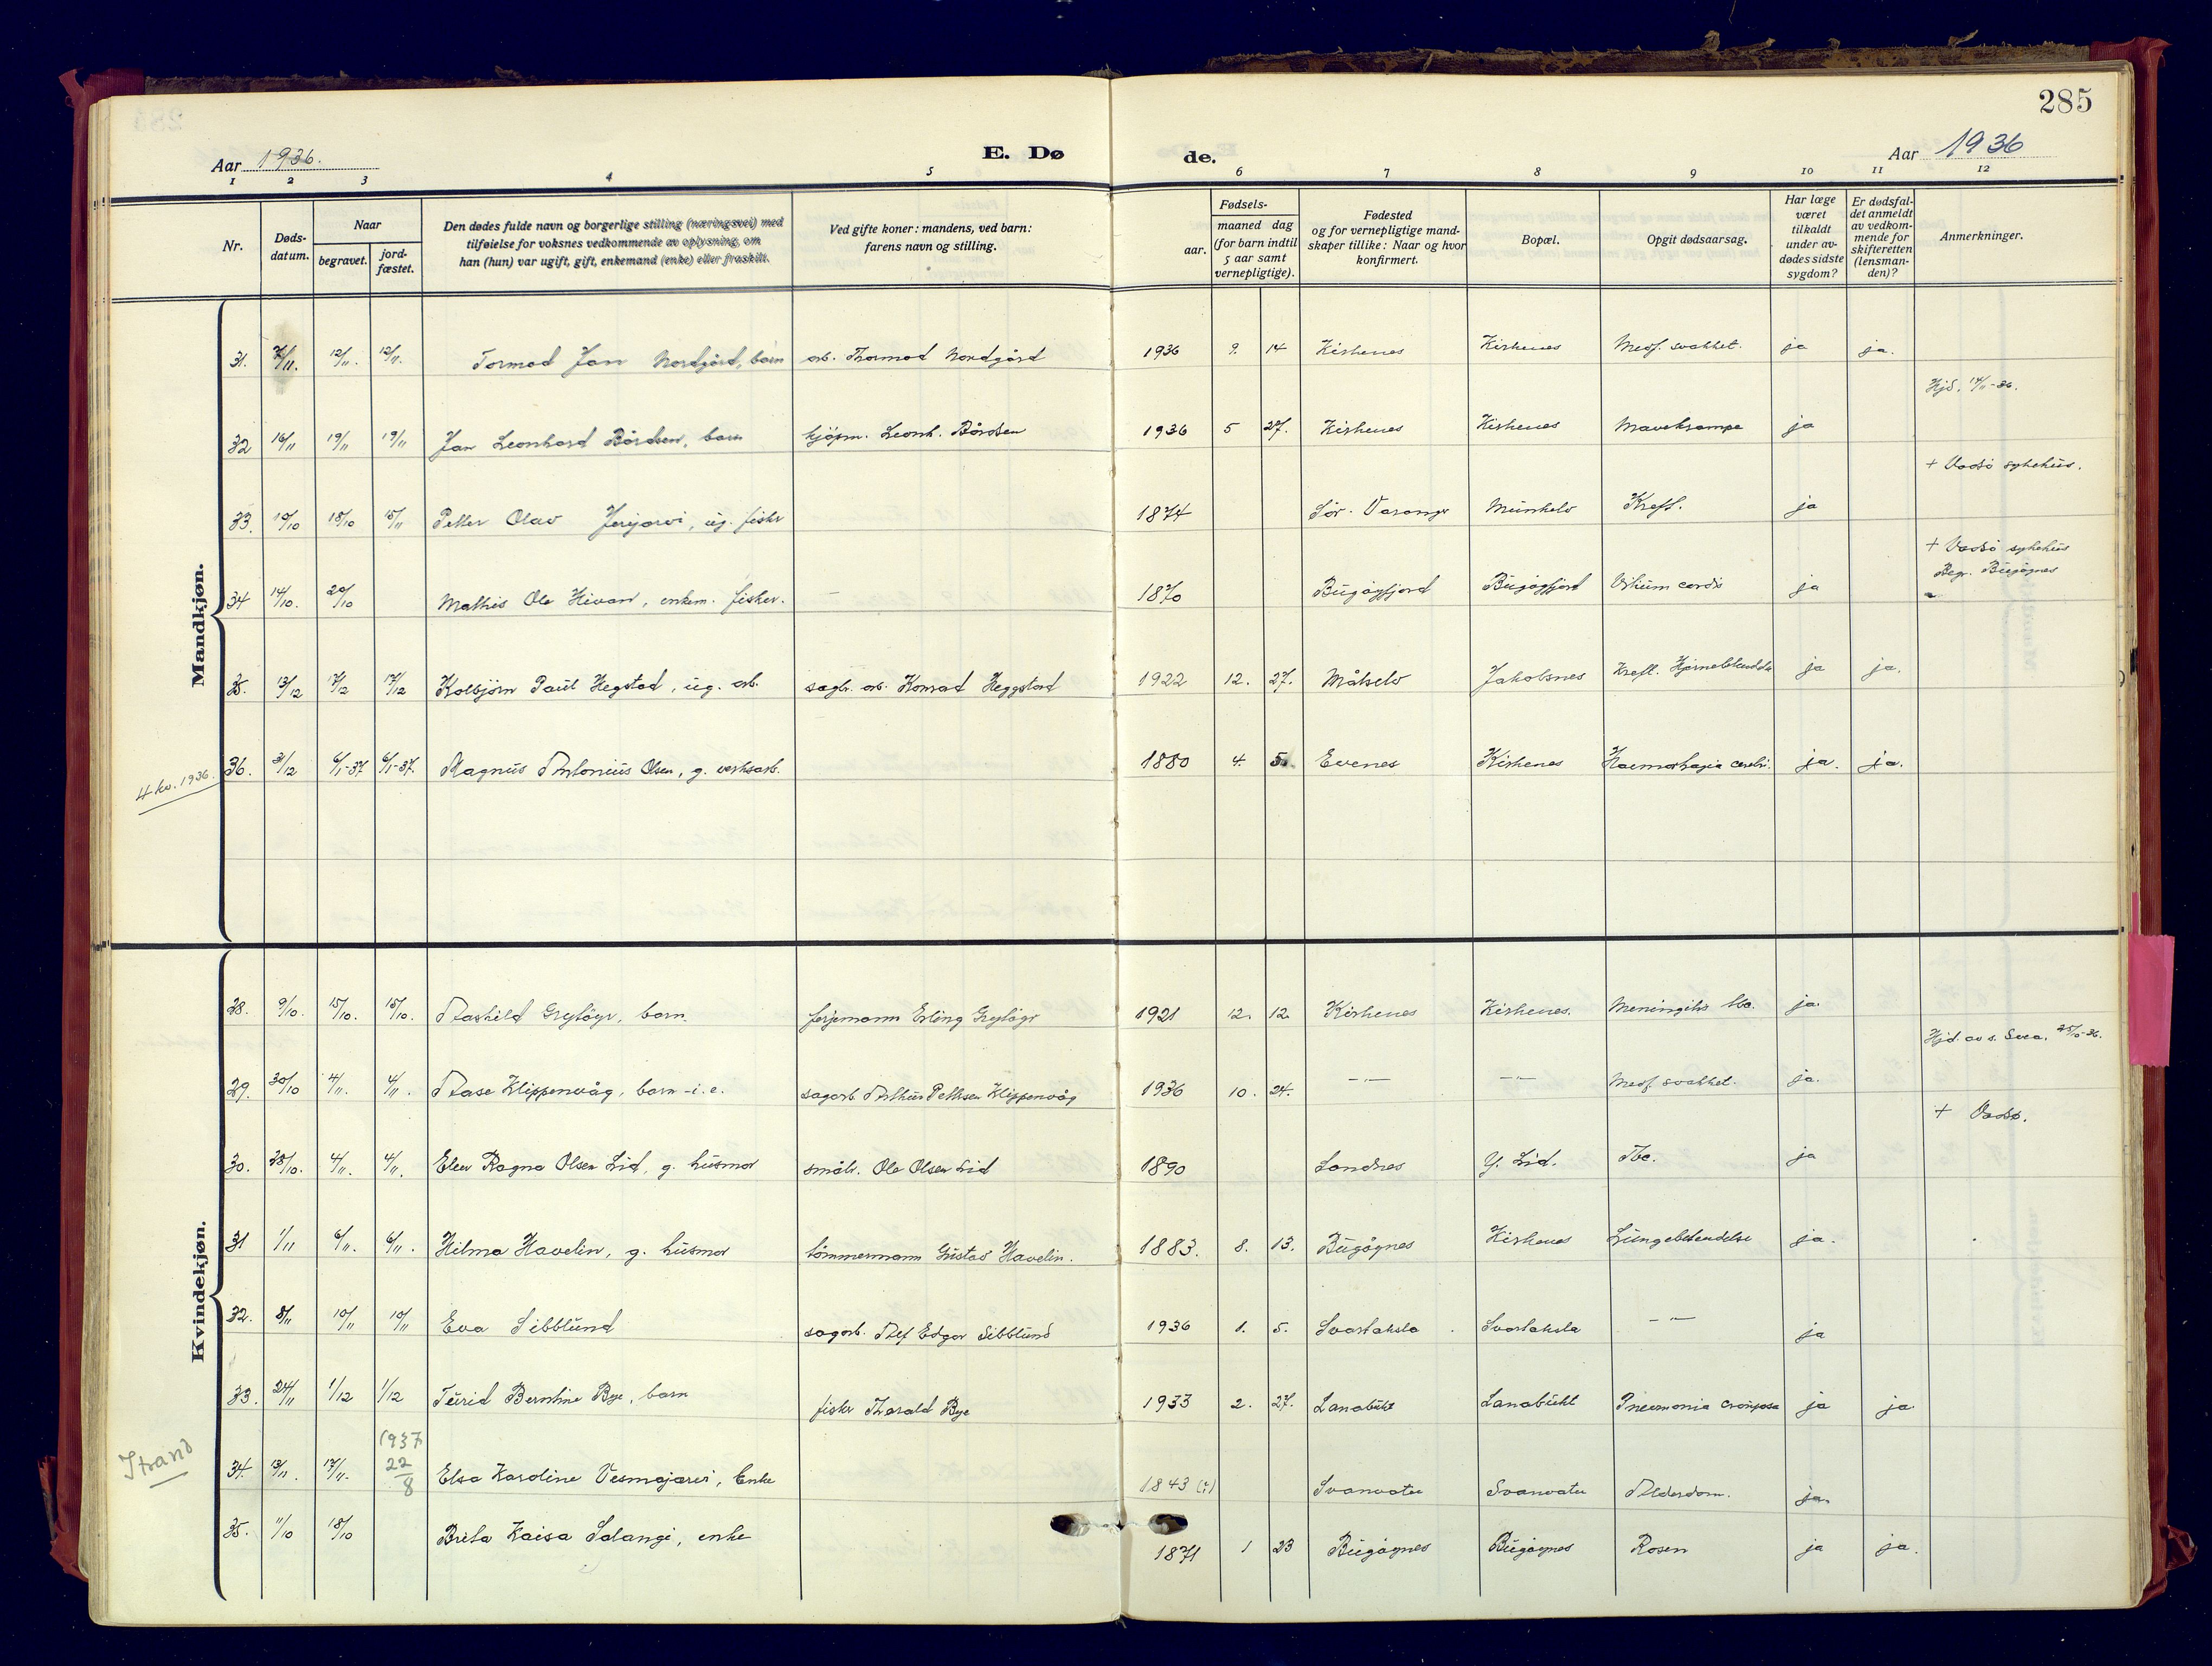 285
Aar 1936.
E. Dø
de.
Aar 1936
1 2 3 4 5 6 7 8 9 10 11 12
Nr.
Døds-
datum.
Naar
begravet.
jord-
fæstet.
Den dødes fulde navn og borgerlige stilling (næringsvei) med
tilføielse for voksnes vedkommende av oplysning, om
han (hun) var ugift, gift, enkemand (enke) eller fraskilt.
Ved gifte koner: mandens, ved barn:
farens navn og stilling.
Fødsels-
aar.
maaned dag
(for barn indtil
5 aar samt
vernepligtige).
Fødested
og for vernepligtige mand-
skaper tillike: Naar og hvor
konfirmert.
Bopæl.
Opgit dødsaarsag.
Har læge
været
tilkaldt
under av-
dødes sidste
sygdom?
Er dødsfal-
det anmeldt
av vedkom-
mende for
skifteretten
(lensman-
den)?
Anmerkninger.
Mandkjøn.
31. 7/11. 12/11. 12/11. Tormod Jan Nordgård, barn arb. Thormod Nordgård 1936 9. 14 Kirkenes Kirkenes Medf. svakhet. ja ja.
Hjd. 14/11-36.
32 16/11 19/11 19/11 Jan Leonhard Bårdsen, barn kjøpm. Leonh. Bårdsen 1936 5 27. Kirkenes Kirkenes Mavekrampe ja
+ Vadsö sykehus.
33. 10/10 18/10 15/11 Petter Olav Jerijærvi, ug. fisker 1874 Sör-Varanger Munkelv Kreft. ja
+ Vadsö sykehus
Begr. Bugöynes
34 14/10. 20/10 Mathis Ole Hivan, enkem. fisker. — 1870 Bugöyfjord Bugöyfjord Vitium cordis ja
35. 13/12 17/12 17/12 Kolbjörn Paul Hegstad, ug. arb. sagbr. arb. Konrad Heggstad 1922 12. 27. Målselv Jakobsnes Kreft. ja ja.
36. 31/12 6/1-37 6/1-37. Magnus Antonius Olsen, g. verksarb. 1880 4. 5. Evenes Kirkenes Haemorhagia cerebri. ja. ja.
4 kv. 1936.
Kvindekjøn.
28. 9/10. 15/10. 15/10. Aashild Gryløyr, barn. ferjemann Erling Gryløyr 1921 12. 12. Kirkenes Kirkenes. Meningitis tbc. ja.
Hjd. av s. Svea. 25/10-36.
29. 30/10 4/11. 4/11. Aase Klippenvåg, barn-i.e. sagarb. Arthur Pettersen Klippenvåg 1936 10. 24. —"— —"— Medf. svakhet. ja.
+ Vadsö.
30. 28/10. 4/11. 4/11. Elen Ragna Olsen Lid, g. husmor småbr. Ole Olsen Lid 1890 Sandnes Y. Lid. Tbc. ja
31 1/11 6/11. 6/11. Hilma Havelin, g. husmor tömmermann Gustav Havelin. 1883. 8. 13. Bugöynes Kirkenes Lungebetendelse ja.
32. 8/11 10/11 10/11 Eva Sibblund sagarb. Alf Edgar Sibblund 1936 1. 5. Svartaksla Svartaksla —"— ja
33. 24/11 1/12 1/12 Turid Bernthine Bye, barn fisker Tharald Bye 1933 2. 27. Lanabukt Lanabukt Pneumonia crouposa ja ja
1937
Strand
34. 13/11. 17/11. 22/8 Elsa Karoline Vesmajærvi, Enke 1843 (?) Svanvatn Svanvatn Alderdom. ja.
35. 11/10 18/10 Brita Kaisa Salangi, enke 1871 1 23 Bugöynes Bugöynes Rosen ja ja.